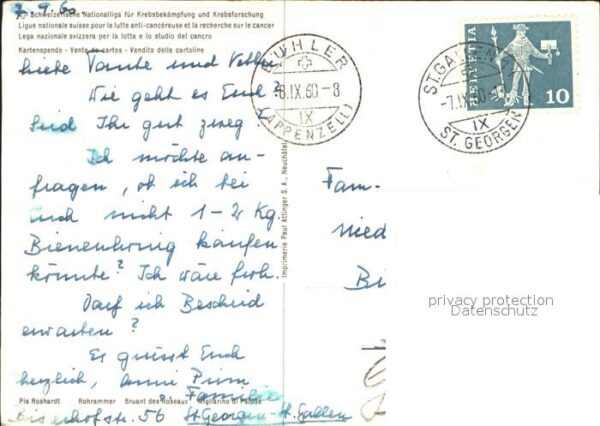 7.9.60
Schweizerische Nationalliga für Krebsbekämpfung und Krebsforschung
Ligue nationale suisse pour la lutte anti-cancéreuse et la recherche sur le cancer
Lega nazionale svizzera per la lotta e lo studio del cancro
Kartenspende - Vente de cartes - Vendita delle cartoline
liebe Tante und Vetter
Wie geht es Euch?
Seid Ihr gut zweg
Ich möchte an-
fragen, ob ich bei
Euch nicht 1-2 Kg.
Bienenhonig kaufen
könnte? Ich wäre froh.
Darf ich Bescheid
erwarten?
Es grüsst Euch
herzlich,
Familie
Pia Roshardt Rohrammer Bruant des Roseaux Migliarino di Palude
56 St. Georgen-St. Gallen
imprimerie Paul Attinger S. A., Neuchâtel
BÜHLER
8.IX.60-8
IX
(APPENZELL)
ST. GALLEN
-7.IX.60
IX
ST. GEORGEN
HELVETIA
10
Fam.
nied
Bi
privacy protection
Datenschutz